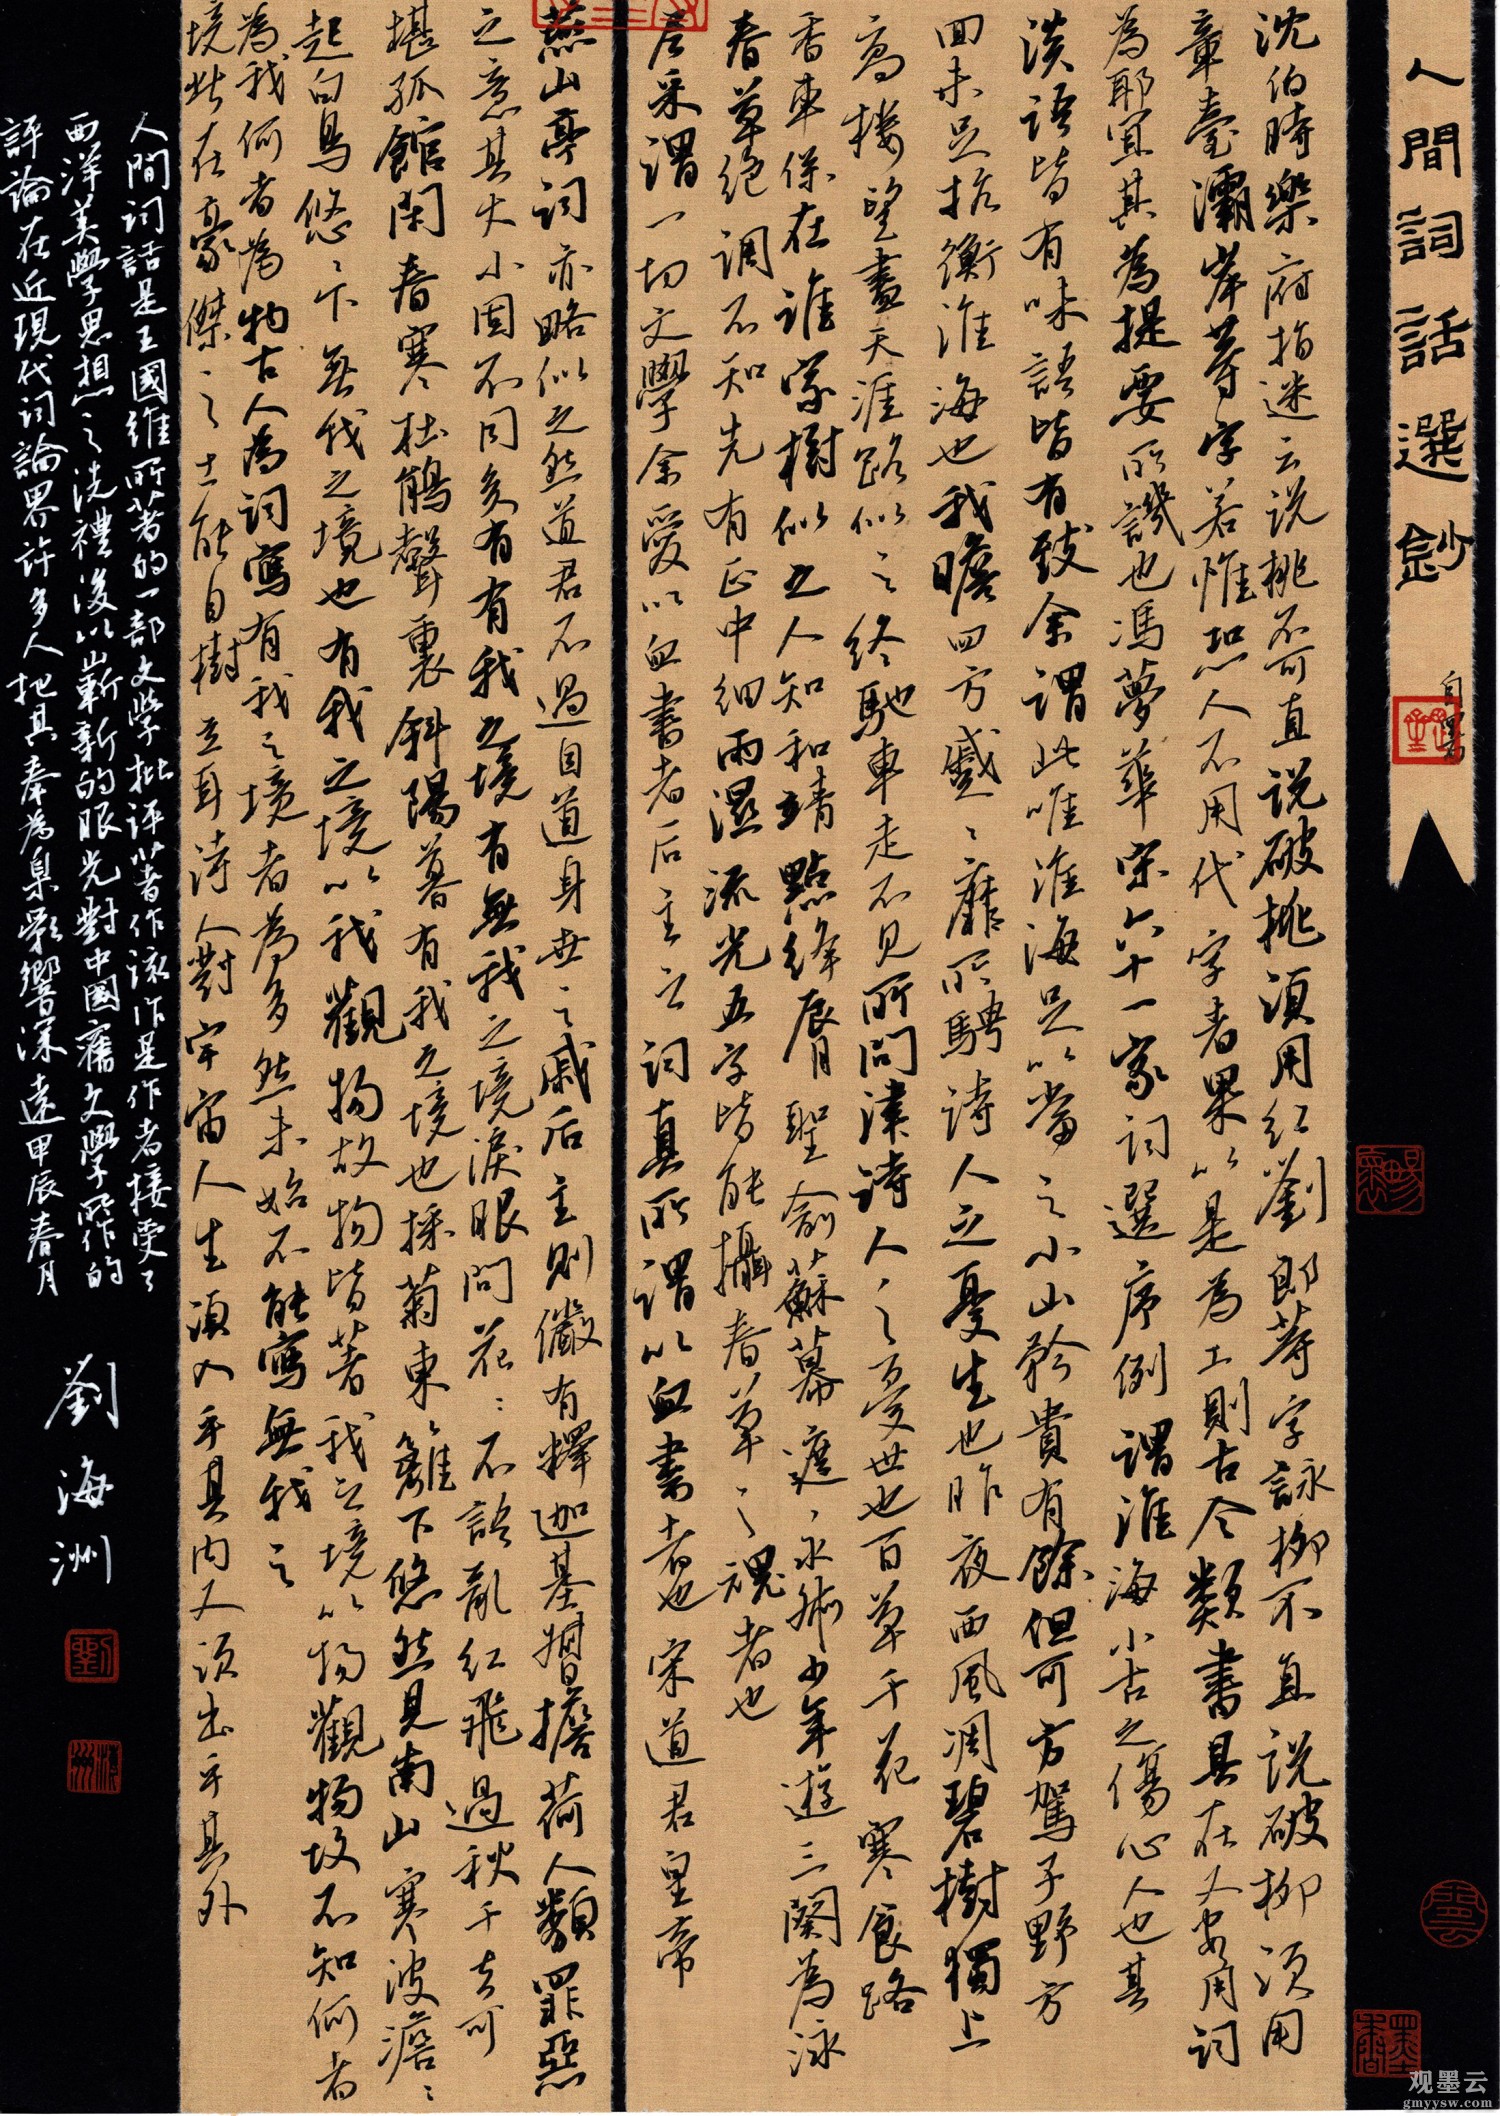 人間詞話選鈔
自署
沈伯時樂府指迷云说桃不可直说破桃須用红劉郎等字詠柳不直说破柳须用
章臺灞岸等字若惟恐人不用代字者果以是為工則古今類書具在又安用词
為耶宜其為提要所譏也馮夢華宋六十一家词選序例謂淮海小古之傷心人也其
淡语皆有味語皆有致余謂此唯淮海足以當之小山矜貴有餘但可方駕子野方
回未足抗衡淮海也我瞻四方蹙〻靡所騁诗人之憂生也昨夜西風凋碧樹獨上
高樓望盡天涯路似之终馳車走不見所問津诗人之憂世也百草千花寒食路
香車係在誰家樹似之人知和靖點绛唇聖俞蘇幕遮永叔少年遊三闋為泳
春草绝调不知先有正中细雨濕流光五字皆能攝春草之魂者也
尼采謂一切文學余愛以血書者后主之词真所謂以血書者也宋道君皇帝
燕山亭词亦略似之然道君不過自道身世之戚后主則儼有釋迦基督擔荷人類罪惡
之意其大小固不同矣有有我之境有無我之境淚眼問花〻不語亂红飛過秋千去可
堪孤館閉春寒杜鵑聲裏斜陽暮有我之境也採菊東籬下悠然見南山寒波澹〻
起白鳥悠〻下無我之境也有我之境以我觀物故物皆著我之境以物觀物故不知何者
為我何者為物古人為词寫有我之境者為多然未始不能寫無我之
境此在豪傑之士能自樹立耳诗人對宇宙人生須入乎其内又须出乎其外
人間词話是王國維所著的一部文學批评著作该作是作者接受了
西洋美學思想之洗禮後以嶄新的眼光對中國舊文學所作的
評論在近現代词論界许多人把其奉為臬影響深遠甲辰春月
劉海洲
观墨云
gmyysw.com